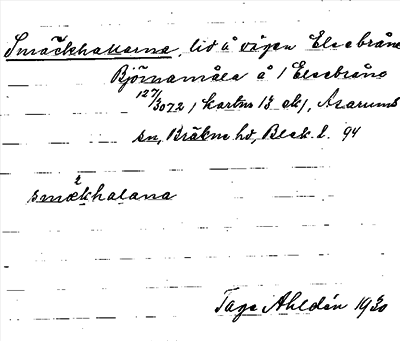 Smäckhallarna, lid å vägen Elsebråne
Björnamåla å / Elsebråne
127/3072 / kartbl 13 ak/, Asarums
sn, Bräkne hd, Blek. l. 94
smækhalana
Tage Ahldén 1930